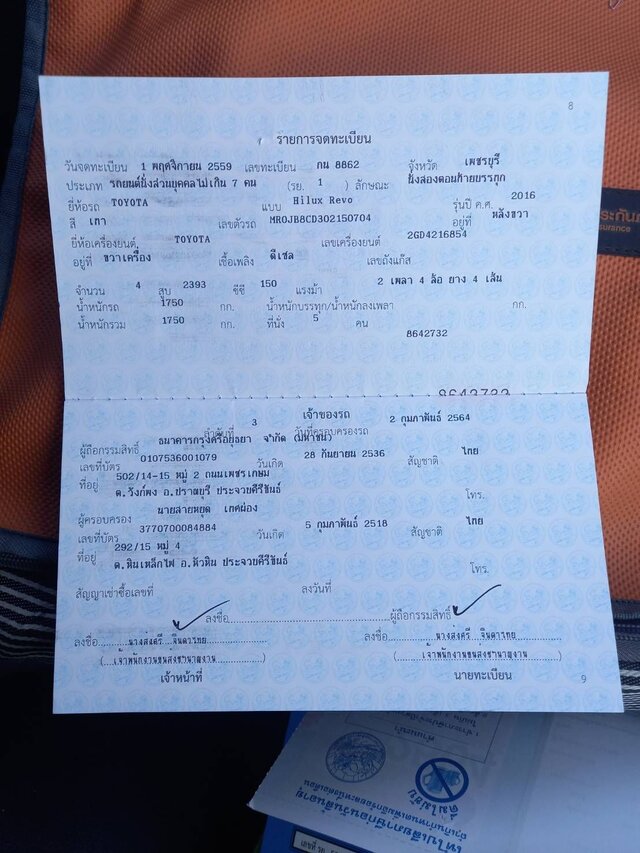 8
รายการจดทะเบียน
วันจดทะเบียน 1 พฤศจิกายน 2559 เลขทะเบียน กน 8862 จังหวัด เพชรบุรี
ประเภท รถยนต์นั่งส่วนบุคคลไม่เกิน 7 คน (รย. 1 ) ลักษณะ นั่งสองตอนท้ายบรรทุก
ยี่ห้อรถ TOYOTA แบบ Hilux Revo รุ่นปี ค.ศ. 2016
สี เทา เลขตัวรถ MR0JB8CD302150704 อยู่ที่ หลังขวา
ยี่ห้อเครื่องยนต์ TOYOTA เลขเครื่องยนต์ 2GD4216854
อยู่ที่ ขวาเครื่อง เชื้อเพลิง ดีเซล เลขถังแก๊ส
จำนวน 4 สูบ 2393 ซีซี 150 แรงม้า 2 เพลา 4 ล้อ ยาง 4 เส้น
น้ำหนักรถ 1750 กก. น้ำหนักบรรทุก/น้ำหนักลงเพลา กก.
น้ำหนักรวม 1750 กก. ที่นั่ง 5 คน
8642732
8642732
เจ้าของรถ
ลำดับที่ 3 วันที่ครอบครองรถ 2 กุมภาพันธ์ 2564
ผู้ถือกรรมสิทธิ์ ธนาคารกรุงศรีอยุธยา จำกัด (มหาชน)
เลขที่บัตร 0107536001079 วันเกิด 28 กันยายน 2536 สัญชาติ ไทย
ที่อยู่ 502/14-15 หมู่ 2 ถนนเพชรเกษม
ต.วังก์พง อ.ปราณบุรี ประจวบคีรีขันธ์ โทร.
ผู้ครอบครอง นายสายหยุด เทศผ่อง
เลขที่บัตร 3770700084884 วันเกิด 5 กุมภาพันธ์ 2518 สัญชาติ ไทย
ที่อยู่ 292/15 หมู่ 4
ต.หินเหล็กไฟ อ.หัวหิน ประจวบคีรีขันธ์ โทร.
สัญญาเช่าซื้อเลขที่ ลงวันที่
ลงชื่อ ผู้ถือกรรมสิทธิ์
ลงชื่อ นางส่งศรี จินดาไทย ลงชื่อ นางส่งศรี จินดาไทย
(เจ้าพนักงานขนส่งชำนาญงาน) (เจ้าพนักงานขนส่งชำนาญงาน)
เจ้าหน้าที่ นายทะเบียน
9